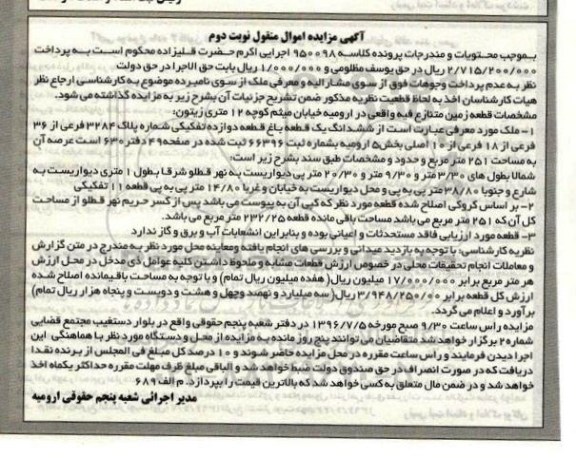 آگهی مزایده اموال منقول نوبت دوم
بموجب محتویات و مندرجات پرونده کلاسه ۹۵۰۰۹۸ اجرایی اکرم حضرت قلیزاده محکوم است به پرداخت
۲/۷۱۵/۲۰۰/۰۰۰ ریال در حق یوسف مظلومی و ۱/۰۰۰/۰۰۰ ریال بابت حق الاجرا در حق دولت
نظر به عدم پرداخت وجوهات فوق از سوی مشارالیه و معرفی ملک از سوی نامبرده موضوع به کارشناسی ارجاع نظر
هیات کارشناسان اخذ به لحاظ قطعیت نظریه مذکور ضمن تشریح جزئیات آن بشرح زیر به مزایده گذاشته می شود.
مشخصات قطعه زمین متنازع فیه واقعی در ارومیه خیابان میثم کوچه ۱۲ متری زیتون:
۱- ملک مورد معرفی عبارت است از ششدانگ یک قطعه باغ قطعه دوازده تفکیکی شماره پلاک ۳۲۸۴ فرعی از ۳۶
فرعی از ۱۸ فرعی از ۱۰ اصلی بخش ۵ ارومیه بشماره ثبت ۶۶۳۹۶ ثبت شده در صفحه ۴۹ دفتر ۶۳۰ است عرصه آن
به مساحت ۲۵۱ متر مربع و حدود و مشخصات طبق سند بشرح زیر است:
شمالا بطول های ۳/۳۰ متر و ۹/۳۰ متر و ۲۰/۳۰ متر پی دیواریست به نهر قطلو شرقا بطول ۱ متری دیواریست به
شارع و جنوبا ۳۸/۸۰ متر پی به پی و محل دیواریست به خیابان و غربا ۱۴/۸۰ متر پی به پی قطعه ۱۱ تفکیکی
۲- بر اساس کروکی اصلاح شده قطعه مورد نظر که کپی آن به پیوست می باشد پس از کسر حریم نهر قطلو از مساحت
کل آن که ۲۵۱ متر مربع می باشد مساحت باقی مانده قطعه ۲۳۲/۲۵ متر مربع می باشد.
۳- قطعه مورد ارزیابی فاقد مستحدثات و اعیانی بوده و بنابراین انشعابات آب و برق و گاز ندارد
نظریه کارشناسی: با توجه به بازدید میدانی و بررسی های انجام یافته و معاینه محل مورد نظر به مندرج در متن گزارش
و معاملات انجام تحقیقات محلی در خصوص ارزش قطعات مشابه و ملحوظ داشتن کلیه عوامل ذی مدخل در محل ارزش
هر متر مربع برابر ۱۷/۰۰۰/۰۰۰ میلیون ریال (هفده میلیون ریال تمام) و با توجه به مساحت باقیمانده اصلاح شده
ارزش کل قطعه برابر ۳/۹۴۸/۲۵۰/۰۰۰ ریال (سه میلیارد و نهصد وچهل و هشت و دویست و پنجاه هزار ریال تمام)
برآورد و اعلام می گردد.
مزایده راس ساعت ۹/۳۰ صبح مورخه ۱۳۹۶/۷/۵ در دفتر شعبه پنجم حقوقی واقع در بلوار دستغیب مجتمع قضایی
شماره ۲ برگزار خواهد شد متقاضیان می توانند پنج روز مانده به مزایده از محل و دستگاه مورد نظر با هماهنگی این
اجرا دیدن فرمایند و راس ساعت مقرره در محل مزایده حاضر شوند و ۱۰ درصد کل مبلغ فی المجلس از برنده نقدا
دریافت که در صورت انصراف در حق صندوق دولت ضبط خواهد شد و الباقی مبلغ ظرف مهلت مقرره حداکثر یکماه اخذ
خواهد شد و در ضمن مال متعلق به کسی خواهد شد که بالاترین قیمت را بپردازد. م الف ۶۸۹
مدیر اجرائی شعبه پنجم حقوقی ارومیه